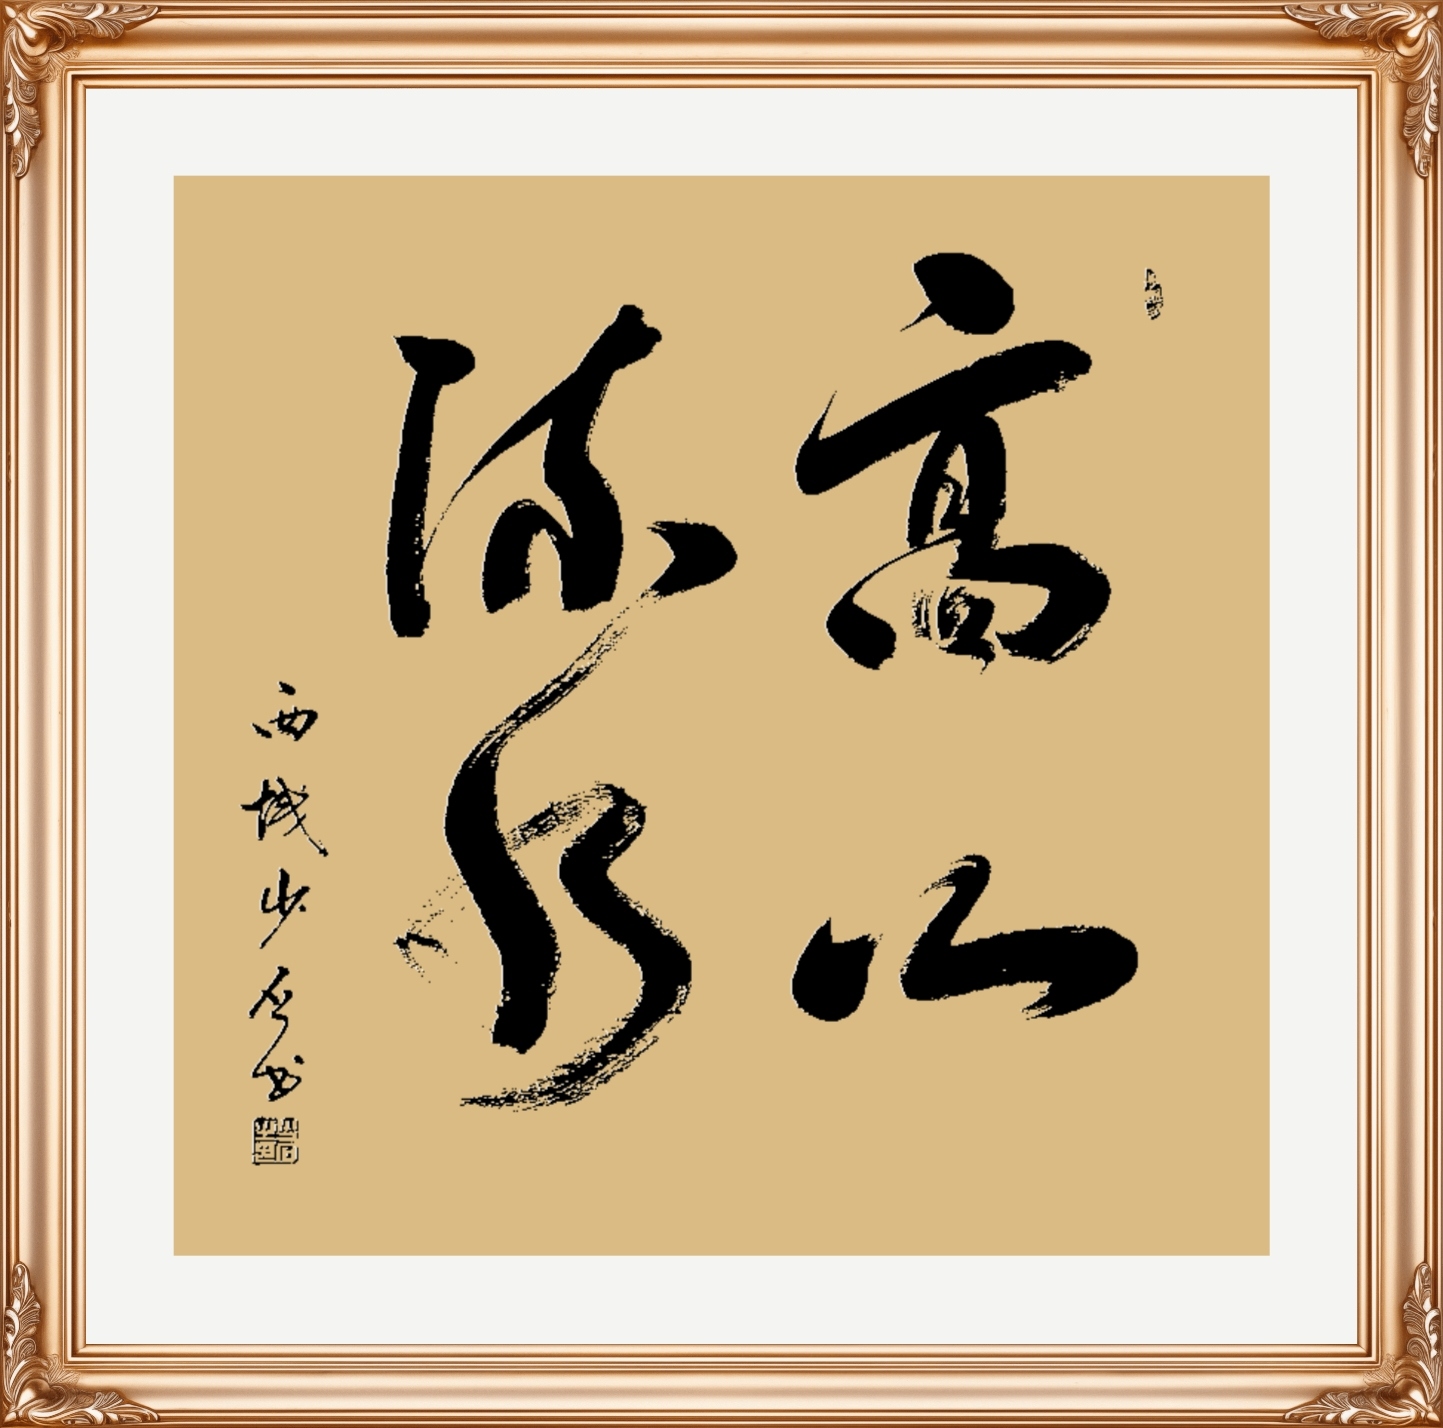 高山
流水
西域步人书